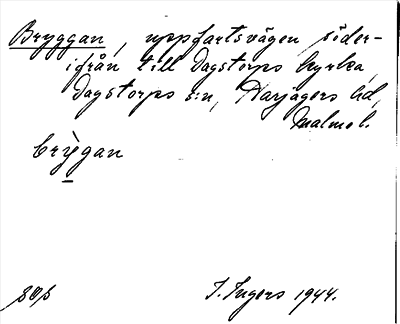 Bryggan, uppfartsvägen söder-
ifrån till Dagstorps kyrka,
Dagstorps s:n, Harjagers hd,
Malmö l.
brỳgan
I. Ingers 1944.